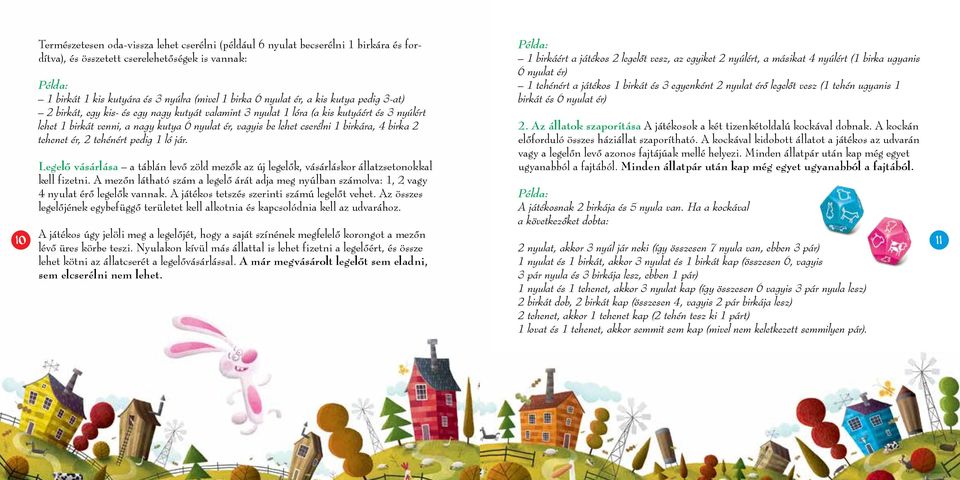 Természetesen oda-vissza lehet cserélni (például 6 nyulat becserélni 1 birkára és for-
dítva), és összetett cserelehetőségek is vannak:
Példa:
– 1 birkát 1 kis kutyára és 3 nyúlra (mivel 1 birka 6 nyulat ér, a kis kutya pedig 3-at)
– 2 birkát, egy kis- és egy nagy kutyát valamint 3 nyulat 1 lóra (a kis kutyáért és 3 nyúlért
lehet 1 birkát venni, a nagy kutya 6 nyulat ér, vagyis be lehet cserélni 1 birkára, 4 birka 2
tehenet ér, 2 tehénért pedig 1 ló jár.
Legelő vásárlása – a táblán levő zöld mezők az új legelők, vásárláskor állatzsetonokkal
kell fizetni. A mezőn látható szám a legelő árát adja meg nyúlban számolva: 1, 2 vagy
4 nyulat érő legelők vannak. A játékos tetszés szerinti számú legelőt vehet. Az összes
legelőjének egybefüggő területet kell alkotnia és kapcsolódnia kell az udvarához.
A játékos úgy jelöli meg a legelőjét, hogy a saját színének megfelelő korongot a mezőn
lévő üres körbe teszi. Nyulakon kívül más állattal is lehet fizetni a legelőért, és össze
lehet kötni az állatcserét a legelővásárlással. A már megvásárolt legelőt sem eladni,
sem elcserélni nem lehet.
10
Példa:
– 1 birkáért a játékos 2 legelőt vesz, az egyiket 2 nyúlért, a másikat 4 nyúlért (1 birka ugyanis
6 nyulat ér)
– 1 tehénért a játékos 1 birkát és 3 egyenként 2 nyulat érő legelőt vesz (1 tehén ugyanis 1
birkát és 6 nyulat ér)
2. Az állatok szaporítása A játékosok a két tizenkétoldalú kockával dobnak. A kockán
előforduló összes háziállat szaporítható. A kockával kidobott állatot a játékos az udvarán
vagy a legelőn levő azonos fajtájúak mellé helyezi. Minden állatpár után kap még egyet
ugyanabból a fajtából. Minden állatpár után kap még egyet ugyanabból a fajtából.
Példa:
A játékosnak 2 birkája és 5 nyula van. Ha a kockával
a következőket dobta:
2 nyulat, akkor 3 nyúl jár neki (így összesen 7 nyula van, ebben 3 pár)
1 nyulat és 1 birkát, akkor 3 nyulat és 1 birkát kap (összesen 6, vagyis
3 pár nyula és 3 birkája lesz, ebben 1 pár)
1 nyulat és 1 tehenet, akkor 3 nyulat kap (így összesen 6 vagyis 3 pár nyula lesz)
2 birkát dob, 2 birkát kap (összesen 4, vagyis 2 pár birkája lesz)
2 tehenet, akkor 1 tehenet kap (2 tehén tesz ki 1 párt)
1 lovat és 1 tehenet, akkor semmit sem kap (mivel nem keletkezett semmilyen pár).
11